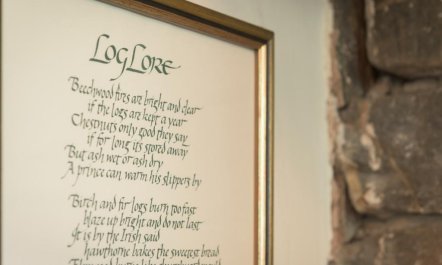 LOGLORE
Beechwood fires are bright and clear
if the logs are kept a year
Chestnuts only good they say
if for long its stored away
But ash wet or ash dry
A prince can warm his slippers by
Birch and fir logs burn too fast
blaze up bright and do not last
It is by the Irish said
hawthorne bakes the sweetest bread